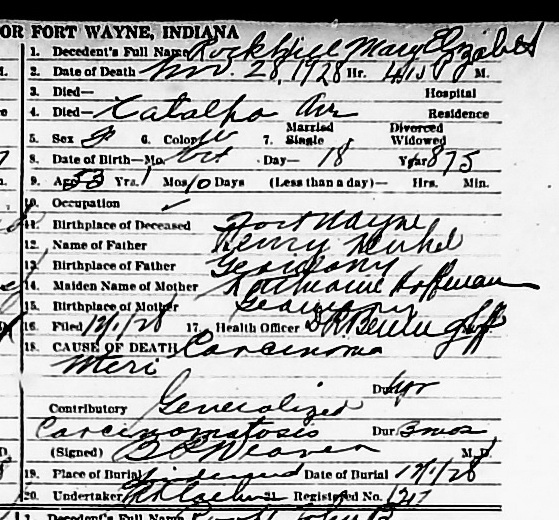 OR FORT WAYNE, INDIANA
1. Decedent's Full Name Rockhill Mary Elizabeth
2. Date of Death Nov. 28, 1928 Hr. 4:15 P M.
3. Died— Hospital
4. Died— Catalpa Ave Residence
Married Divorced
5. Sex F 6. Color W 7. Single Widowed
8. Date of Birth—Mo. Oct Day— 18 Year 875
9. Age 53 Yrs. 1 Mos. 10 Days (Less than a day)— Hrs. Min.
10. Occupation ✓
11. Birthplace of Deceased Fort Wayne
12. Name of Father Henry
13. Birthplace of Father Germany
14. Maiden Name of Mother Katharine Hoffman
15. Birthplace of Mother Germany
16. Filed 12/1/28 17. Health Officer
18. CAUSE OF DEATH Carcinoma
Uteri
Dur. 1 yr
Contributory Generalized
Carcinomatosis Dur. 3 mos
(Signed) Weaver M. D.
19. Place of Burial Lindenwood Date of Burial 12/1/28
20. Undertaker 21. Registered No. 1217
1. Decedent's Full Name